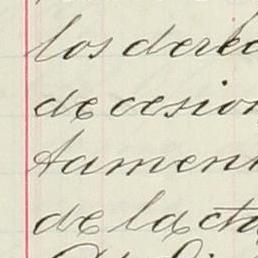 los derec
de cesion
tamen
de la ctu